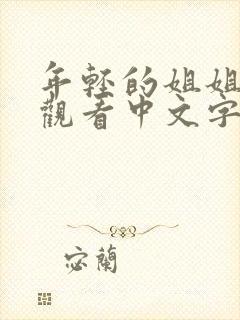 年輕的姐姐
觀看中文字
宓蘭